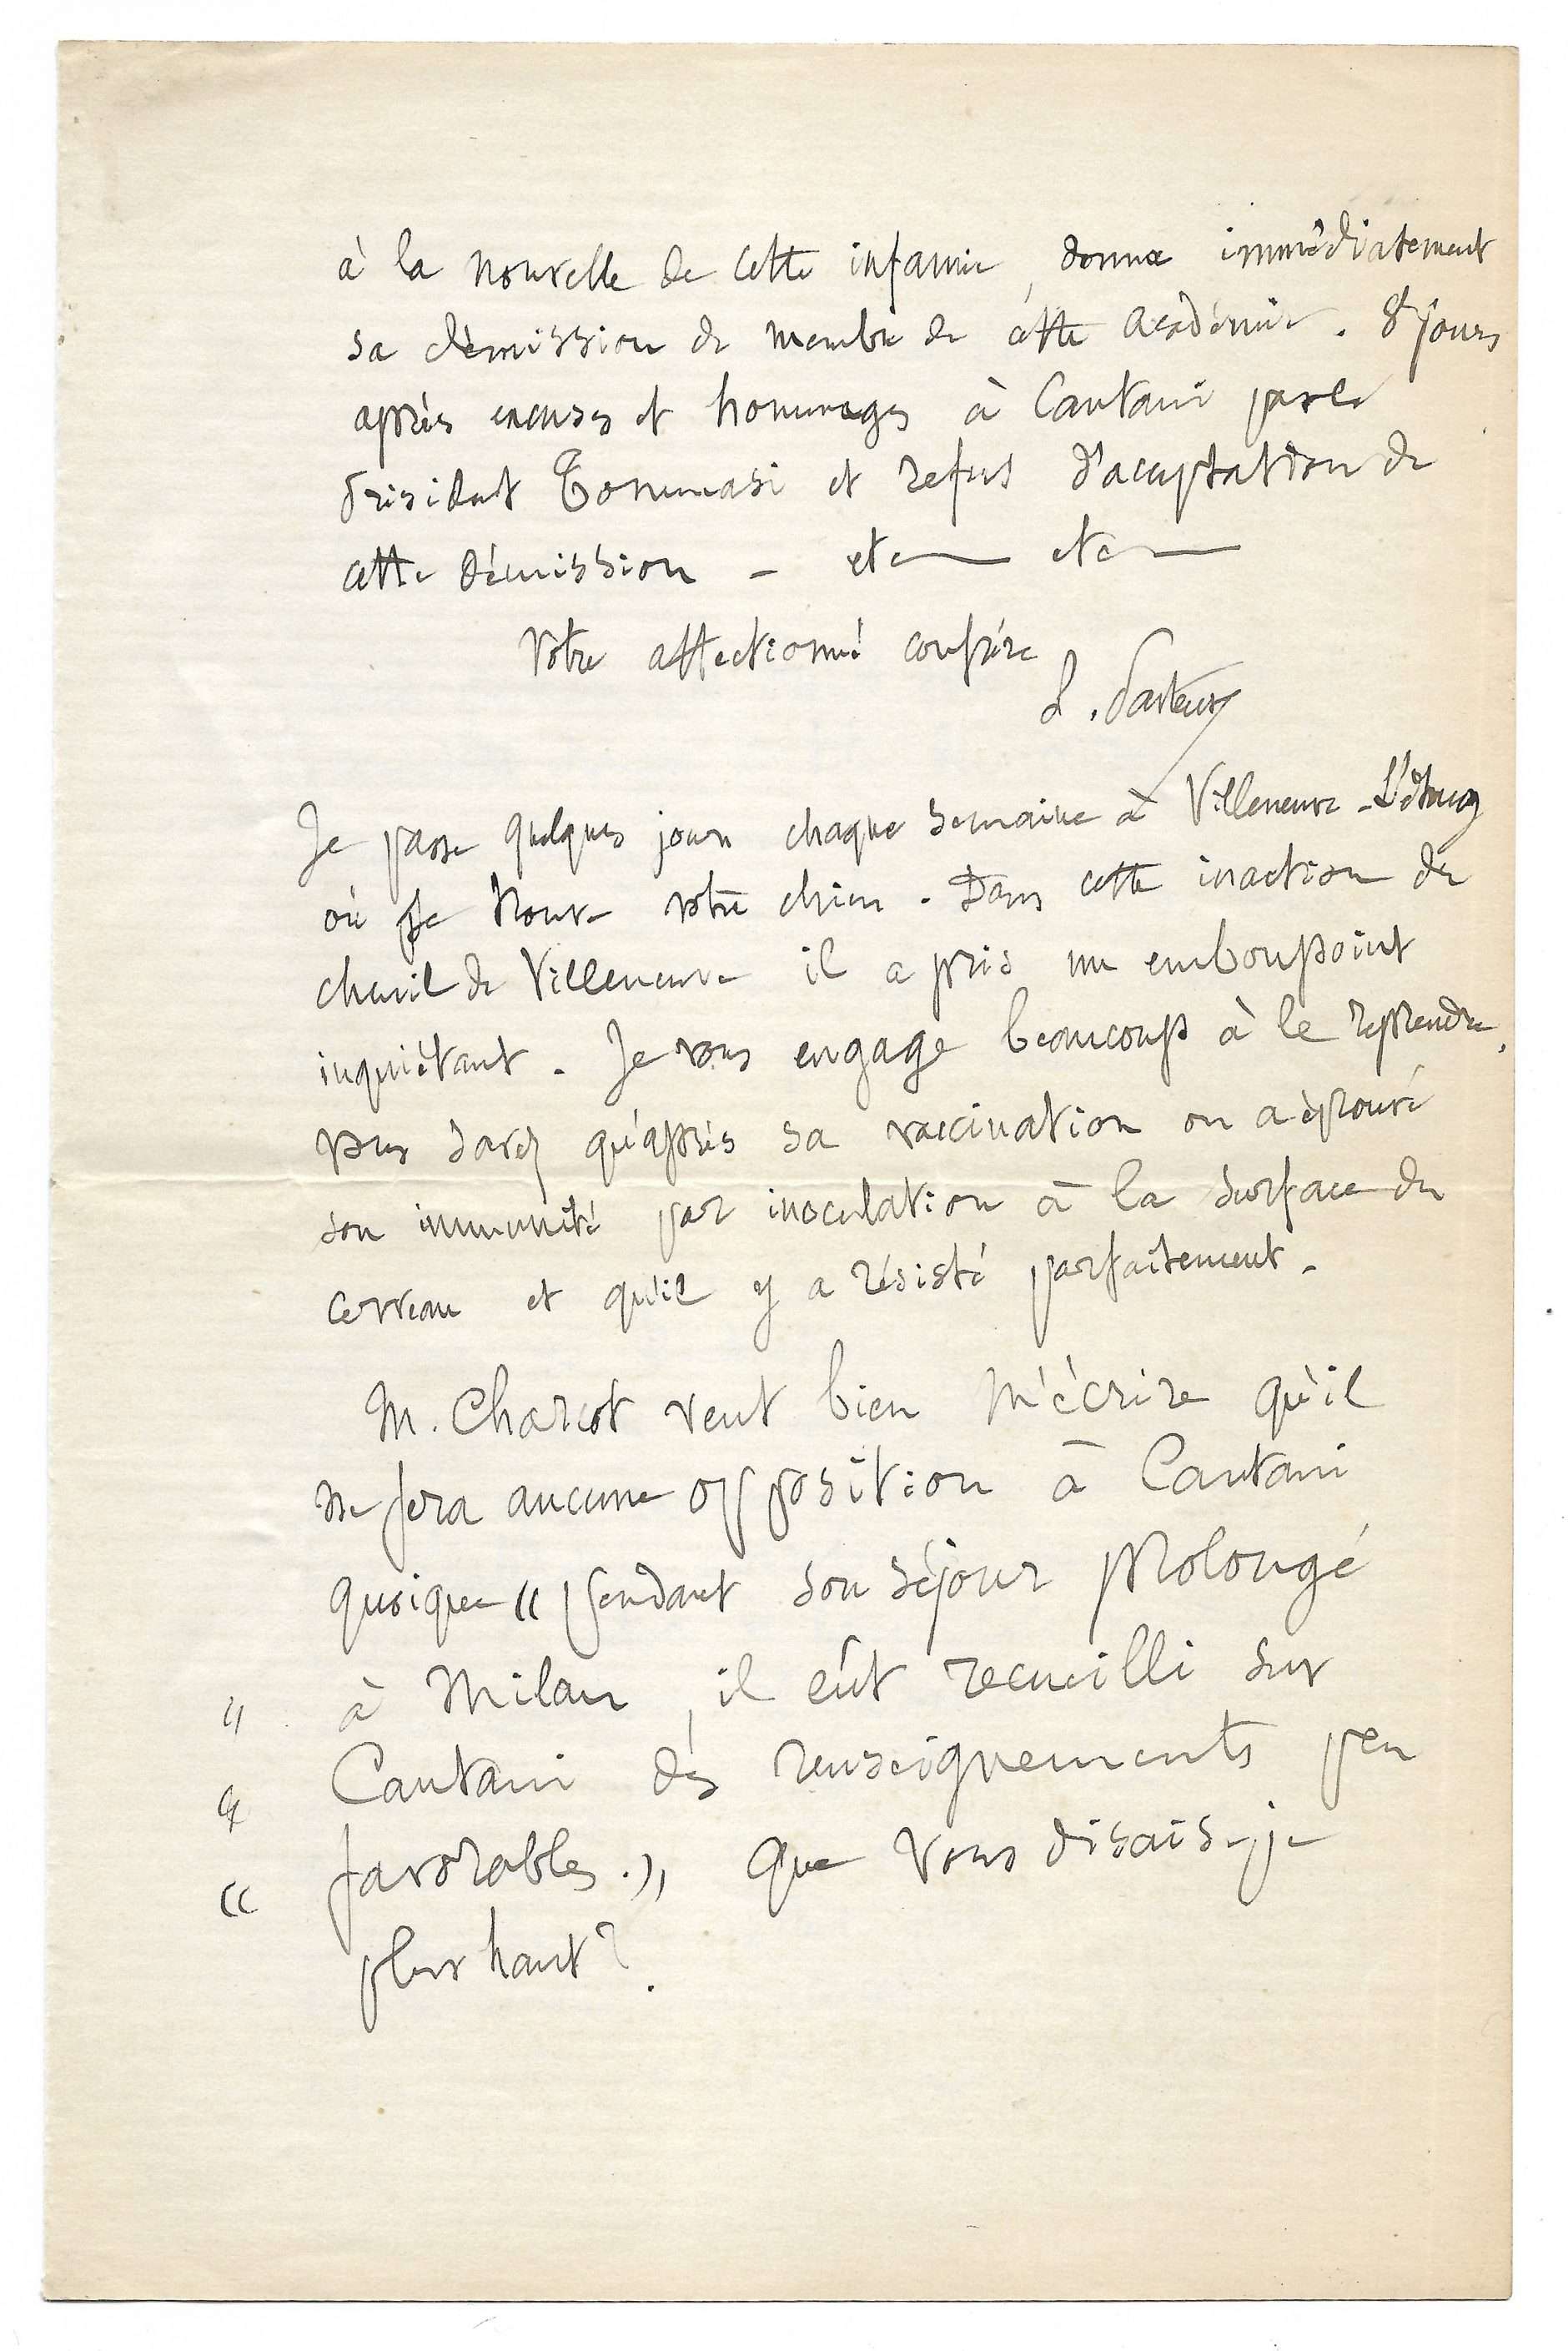 à la nouvelle de cette infamie, donna immédiatement
sa démission de membre de cette académie. 8 jours
après excuses et hommages à Cantani par le
Président Tommasi et refus d'acceptation de
cette démission - etc etc
Votre affectionné confrère
L. Pasteur
Je passe quelques jours chaque semaine à Villeneuve-L'étang
où je trouve votre chien. Dans cette inaction du
chenil de Villeneuve il a pris un embonpoint
inquiétant. Je vous engage beaucoup à le reprendre.
Vous savez qu'après sa vaccination on a éprouvé
son immunité par inoculation à la surface du
cerveau et qu'il y a résisté parfaitement.
M. Charcot veut bien m'écrire qu'il
ne fera aucune opposition à Cantani
quoique « pendant son séjour prolongé
" à Milan, il eût recueilli sur
« Cantani des renseignements peu
« favorables.» Que vous disais-je
plus haut?.